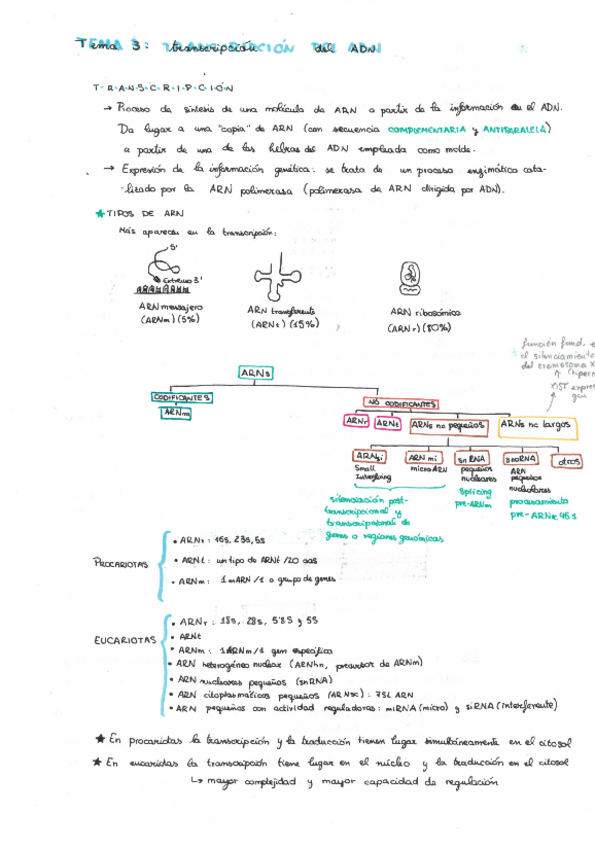 Tema 3: transcripción del ADN
T-R-A-N-S-C-R-I-P-C-I-ÓN
→ Proceso de síntesis de una molécula de ARN a partir de la información en el ADN.
Da lugar a una "copia" de ARN (con secuencia COMPLEMENTARIA y ANTIPARALELA)
a partir de una de las hebras del ADN empleada como molde.
→ Expresión de la información genética: se trata de un proceso enzimático cata-
lizado por la ARN polimerasa (polimerasa de ARN dirigida por ADN).
★ TIPOS DE ARN
Nos aparecen en la transcripción:
5'
Extremo 3'
ARN mensajero
(ARNm) (5%)
ARN transferente
(ARNt) (15%)
ARN ribosómico
(ARNr) (80%)
función fund. e
el silenciamiento
del cromosoma X
(hiperm
XIST expre
gen
ARNs
CODIFICANTES
ARNm
NO CODIFICANTES
ARNr
ARNt
ARNs nc pequeños
ARNs nc largos
ARNsi
Small
Interfering
ARN mi
microARN
snRNA
pequeños
nucleares
Splicing
pre-ARNm
snoRNA
ARN
pequeños
nucleolares
procesamiento
pre-ARNr 45s
otros
silenciación post-
transcripcional y
transcripcional de
genes o regiones genómicas
PROCARIOTAS
• ARNr: 16s, 23s, 5s
• ARNt: un tipo de ARNt /20 aas
• ARNm: 1 mARN /1 o grupo de genes
EUCARIOTAS
• ARNr: 18s, 28s, 5'8S y 5S
• ARNt
• ARNm: 1 ARNm/1 gen específico
• ARN heterogéneo nuclear (ARNhn, precursor de ARNm)
• ARN nucleares pequeños (snRNA)
• ARN citoplasmáticos pequeños (ARNsc): 7SL ARN
• ARN pequeños con actividad reguladoras: miRNA (micro) y siRNA (interferente)
★ En procariotas la transcripción y la traducción tienen lugar simultáneamente en el citosol
★ En eucariotas la transcripción tiene lugar en el núcleo y la traducción en el citosol
↳ mayor complejidad y mayor capacidad de regulación